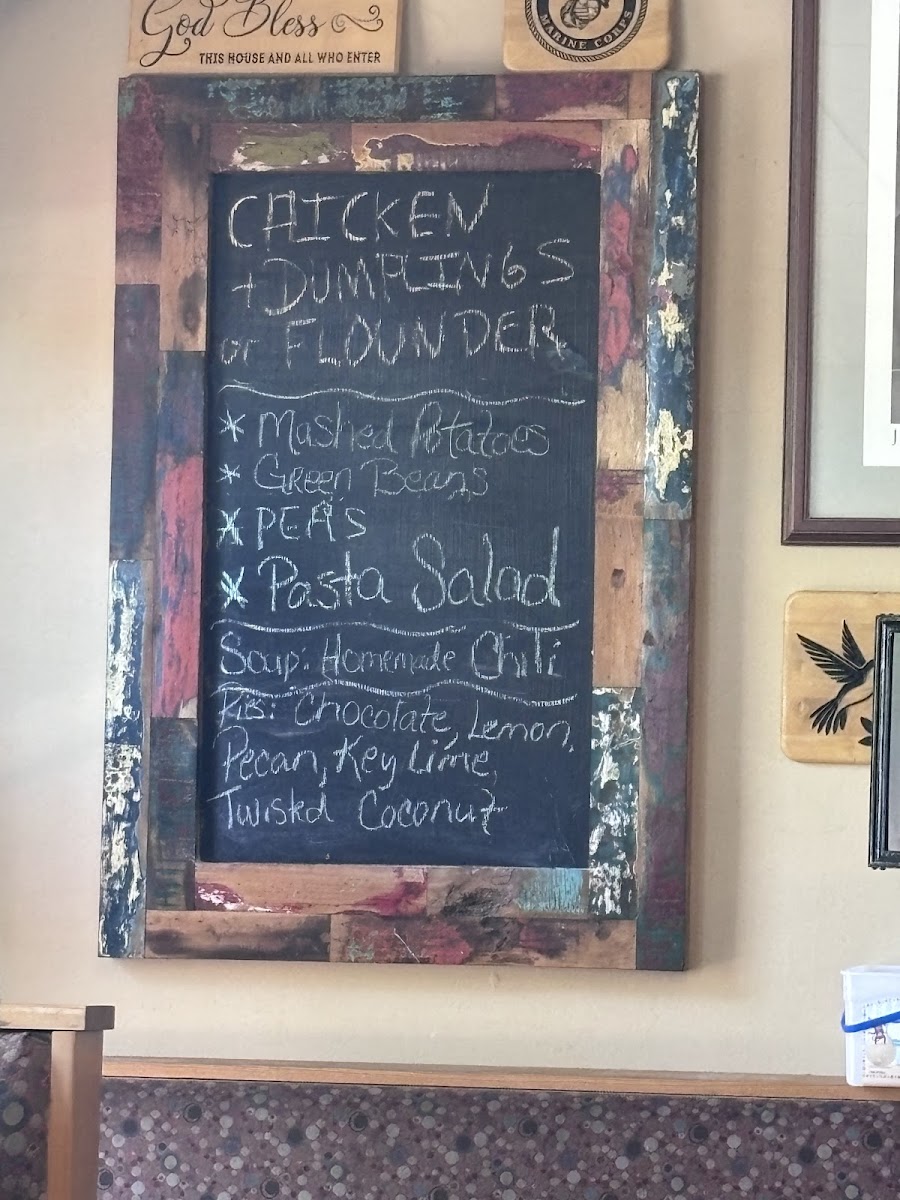 God Bless
THIS HOUSE AND ALL WHO ENTER
MARINE CORPS
CHICKEN
+ DUMPLINGS
or FLOUNDER
* Mashed Potatoes
* Green Beans
* PEAS
* Pasta Salad
Soup: Homemade Chili
Pies: Chocolate, Lemon,
Pecan, Key Lime,
Twisted Coconut
J